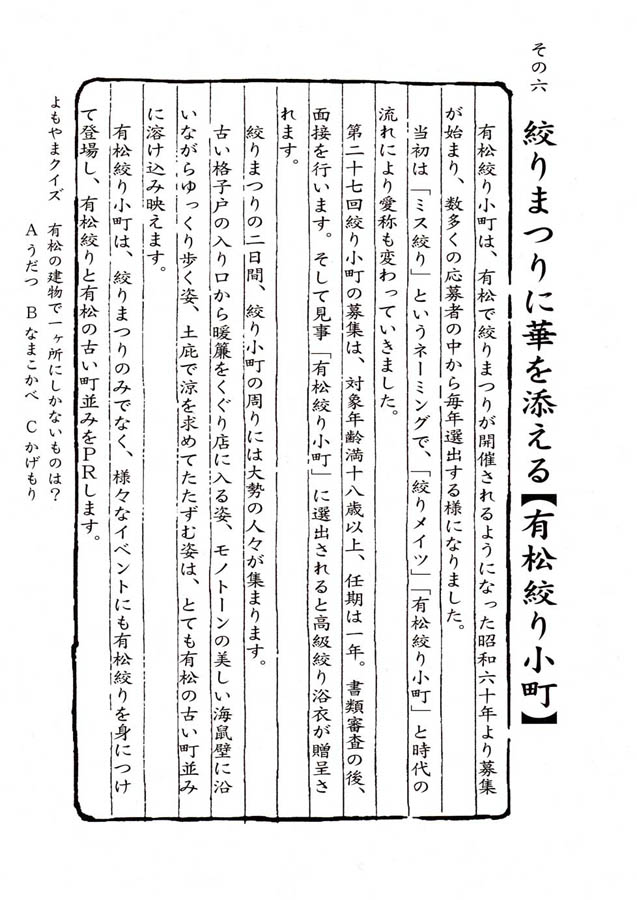 その六
絞りまつりに華を添える【有松絞り小町】
有松絞り小町は、有松で絞りまつりが開催されるようになった昭和六十年より募集
が始まり、数多くの応募者の中から毎年選出する様になりました。
当初は「ミス絞り」というネーミングで、「絞りメイツ」「有松絞り小町」と時代の
流れにより愛称も変わっていきました。
第二十七回絞り小町の募集は、対象年齢満十八歳以上、任期は一年。書類審査の後、
面接を行います。そして見事「有松絞り小町」に選出されると高級絞り浴衣が贈呈さ
れます。
絞りまつりの二日間、絞り小町の周りには大勢の人々が集まります。
古い格子戸の入り口から暖簾をくぐり店に入る姿、モノトーンの美しい海鼠壁に沿
いながらゆっくり歩く姿、土庇で涼を求めてたたずむ姿は、とても有松の古い町並み
に溶け込み映えます。
有松絞り小町は、絞りまつりのみでなく、様々なイベントにも有松絞りを身につけ
て登場し、有松絞りと有松の古い町並みをPRします。
よもやまクイズ 有松の建物で一ヶ所にしかないものは？
Aうだつ Bなまこかべ Cかげもり